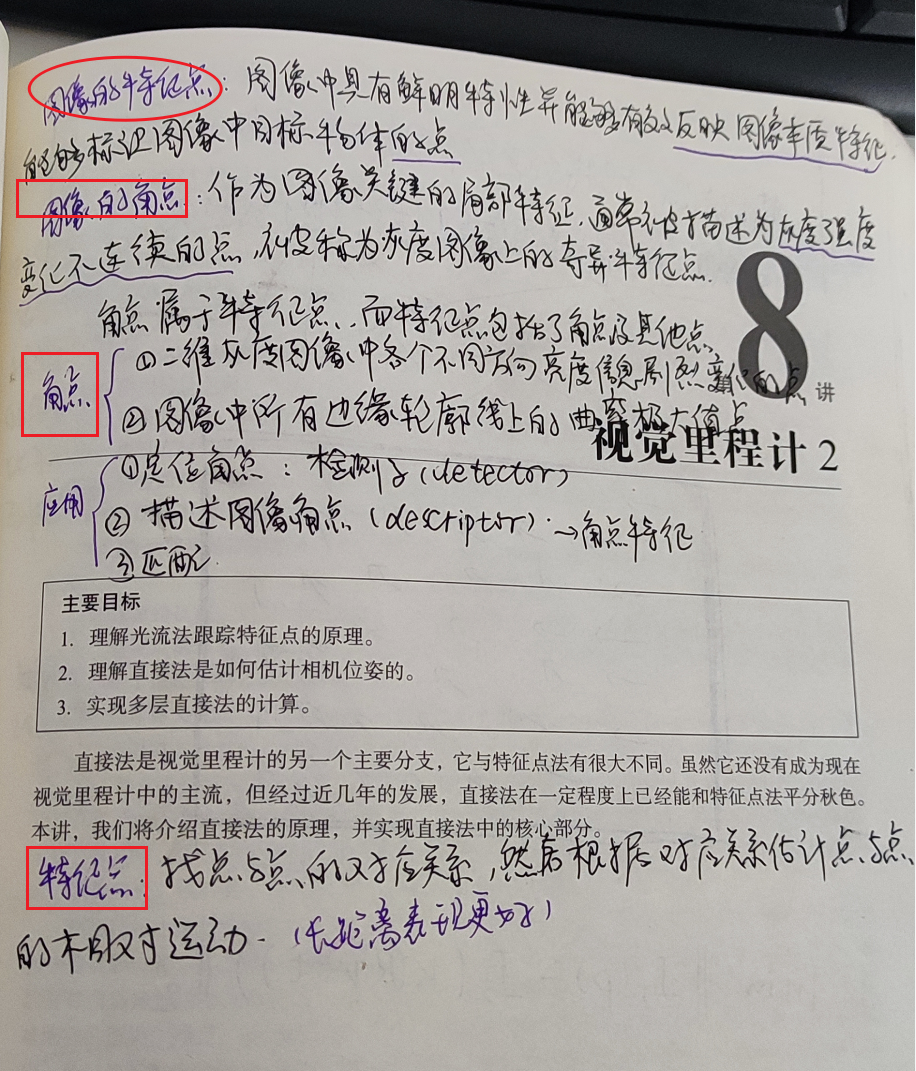 图像的特征点：图像中具有鲜明特性并能够有效反映图像本质特征，
能够标记图像中目标物体的点
图像的角点：作为图像关键的局部特征，通常被描述为灰度强度
变化不连续的点，被称为灰度图像上的奇异特征点．
角点属于特征点，而特征点包括了角点及其他点
8
讲
角点 ①二维灰度图像中各个不同方向亮度信息剧烈变化的点
②图像中所有边缘轮廓线上的曲率极大值点
视觉里程计 2
应用 ①定位角点：检测子(detector)
②描述图像角点(descriptor)．→角点特征
③匹配
主要目标
1. 理解光流法跟踪特征点的原理。
2. 理解直接法是如何估计相机位姿的。
3. 实现多层直接法的计算。
直接法是视觉里程计的另一个主要分支，它与特征点法有很大不同。虽然它还没有成为现在
视觉里程计中的主流，但经过近几年的发展，直接法在一定程度上已经能和特征点法平分秋色。
本讲，我们将介绍直接法的原理，并实现直接法中的核心部分。
特征点：找点与点的对应关系，然后根据对应关系估计点与点
的相对运动．（长距离表现更好）